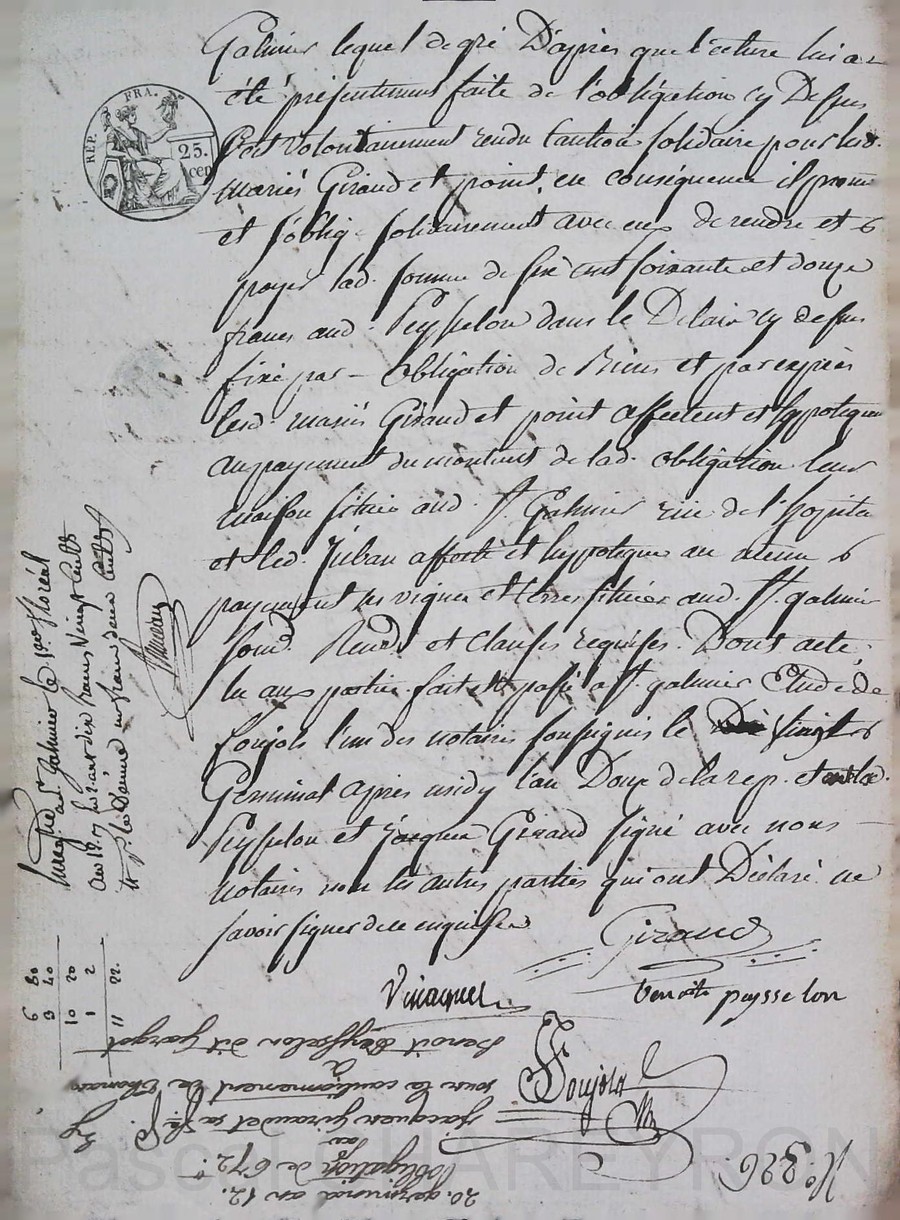 Galmier lequel de gré D'après que lecture lui a
été présentement faite de l'obligation cy Dessus
s'est volontairement rendu Caution solidaire pour lesd.
mariés Giraud et point, en conséquence il promet
et s'oblige solidairement avec eux de rendre et
payer lad. somme de six cent soixante et douze
francs aud. Peysselon dans le Delai cy dessus
fixé par obligation de Biens et par exprès
lesd. mariés Giraud et point affectent et hypotequent
au payement du montant de lad. obligation leur
maison située aud. St. Galmier rue de l'hopital
et led. affecte et hypoteque au meme
payement ses vignes et terres situées aud. St. galmier
soud. Rend. et Clauses requises. Dont acte,
lu aux parties fait et passé a St. galmier Etude de
Soujols l'un des notaires soussignés le vingt
Germinal après midy l'an Douze de la rep. et
Peysselon et jacques Giraud signé avec nous
notaires non les autres parties qui ont Déclaré ne
savoir signer de ce enquises
Giraud
Vinaquet
benoit peysselon
Soujols
REP. FRA.
25.
cen
Enregistré a St. Galmier le 1er floréal
an 12.
6 80
3 40
10 20
1 2
11 22.
No. 326
20. germinal an 12.
obligation de 672 f.
par
jacques Giraud et sa fe.
sous le cautionnement de Thomas
a
Benoit Peysselon dit Georges
Pascal CHAREYRON